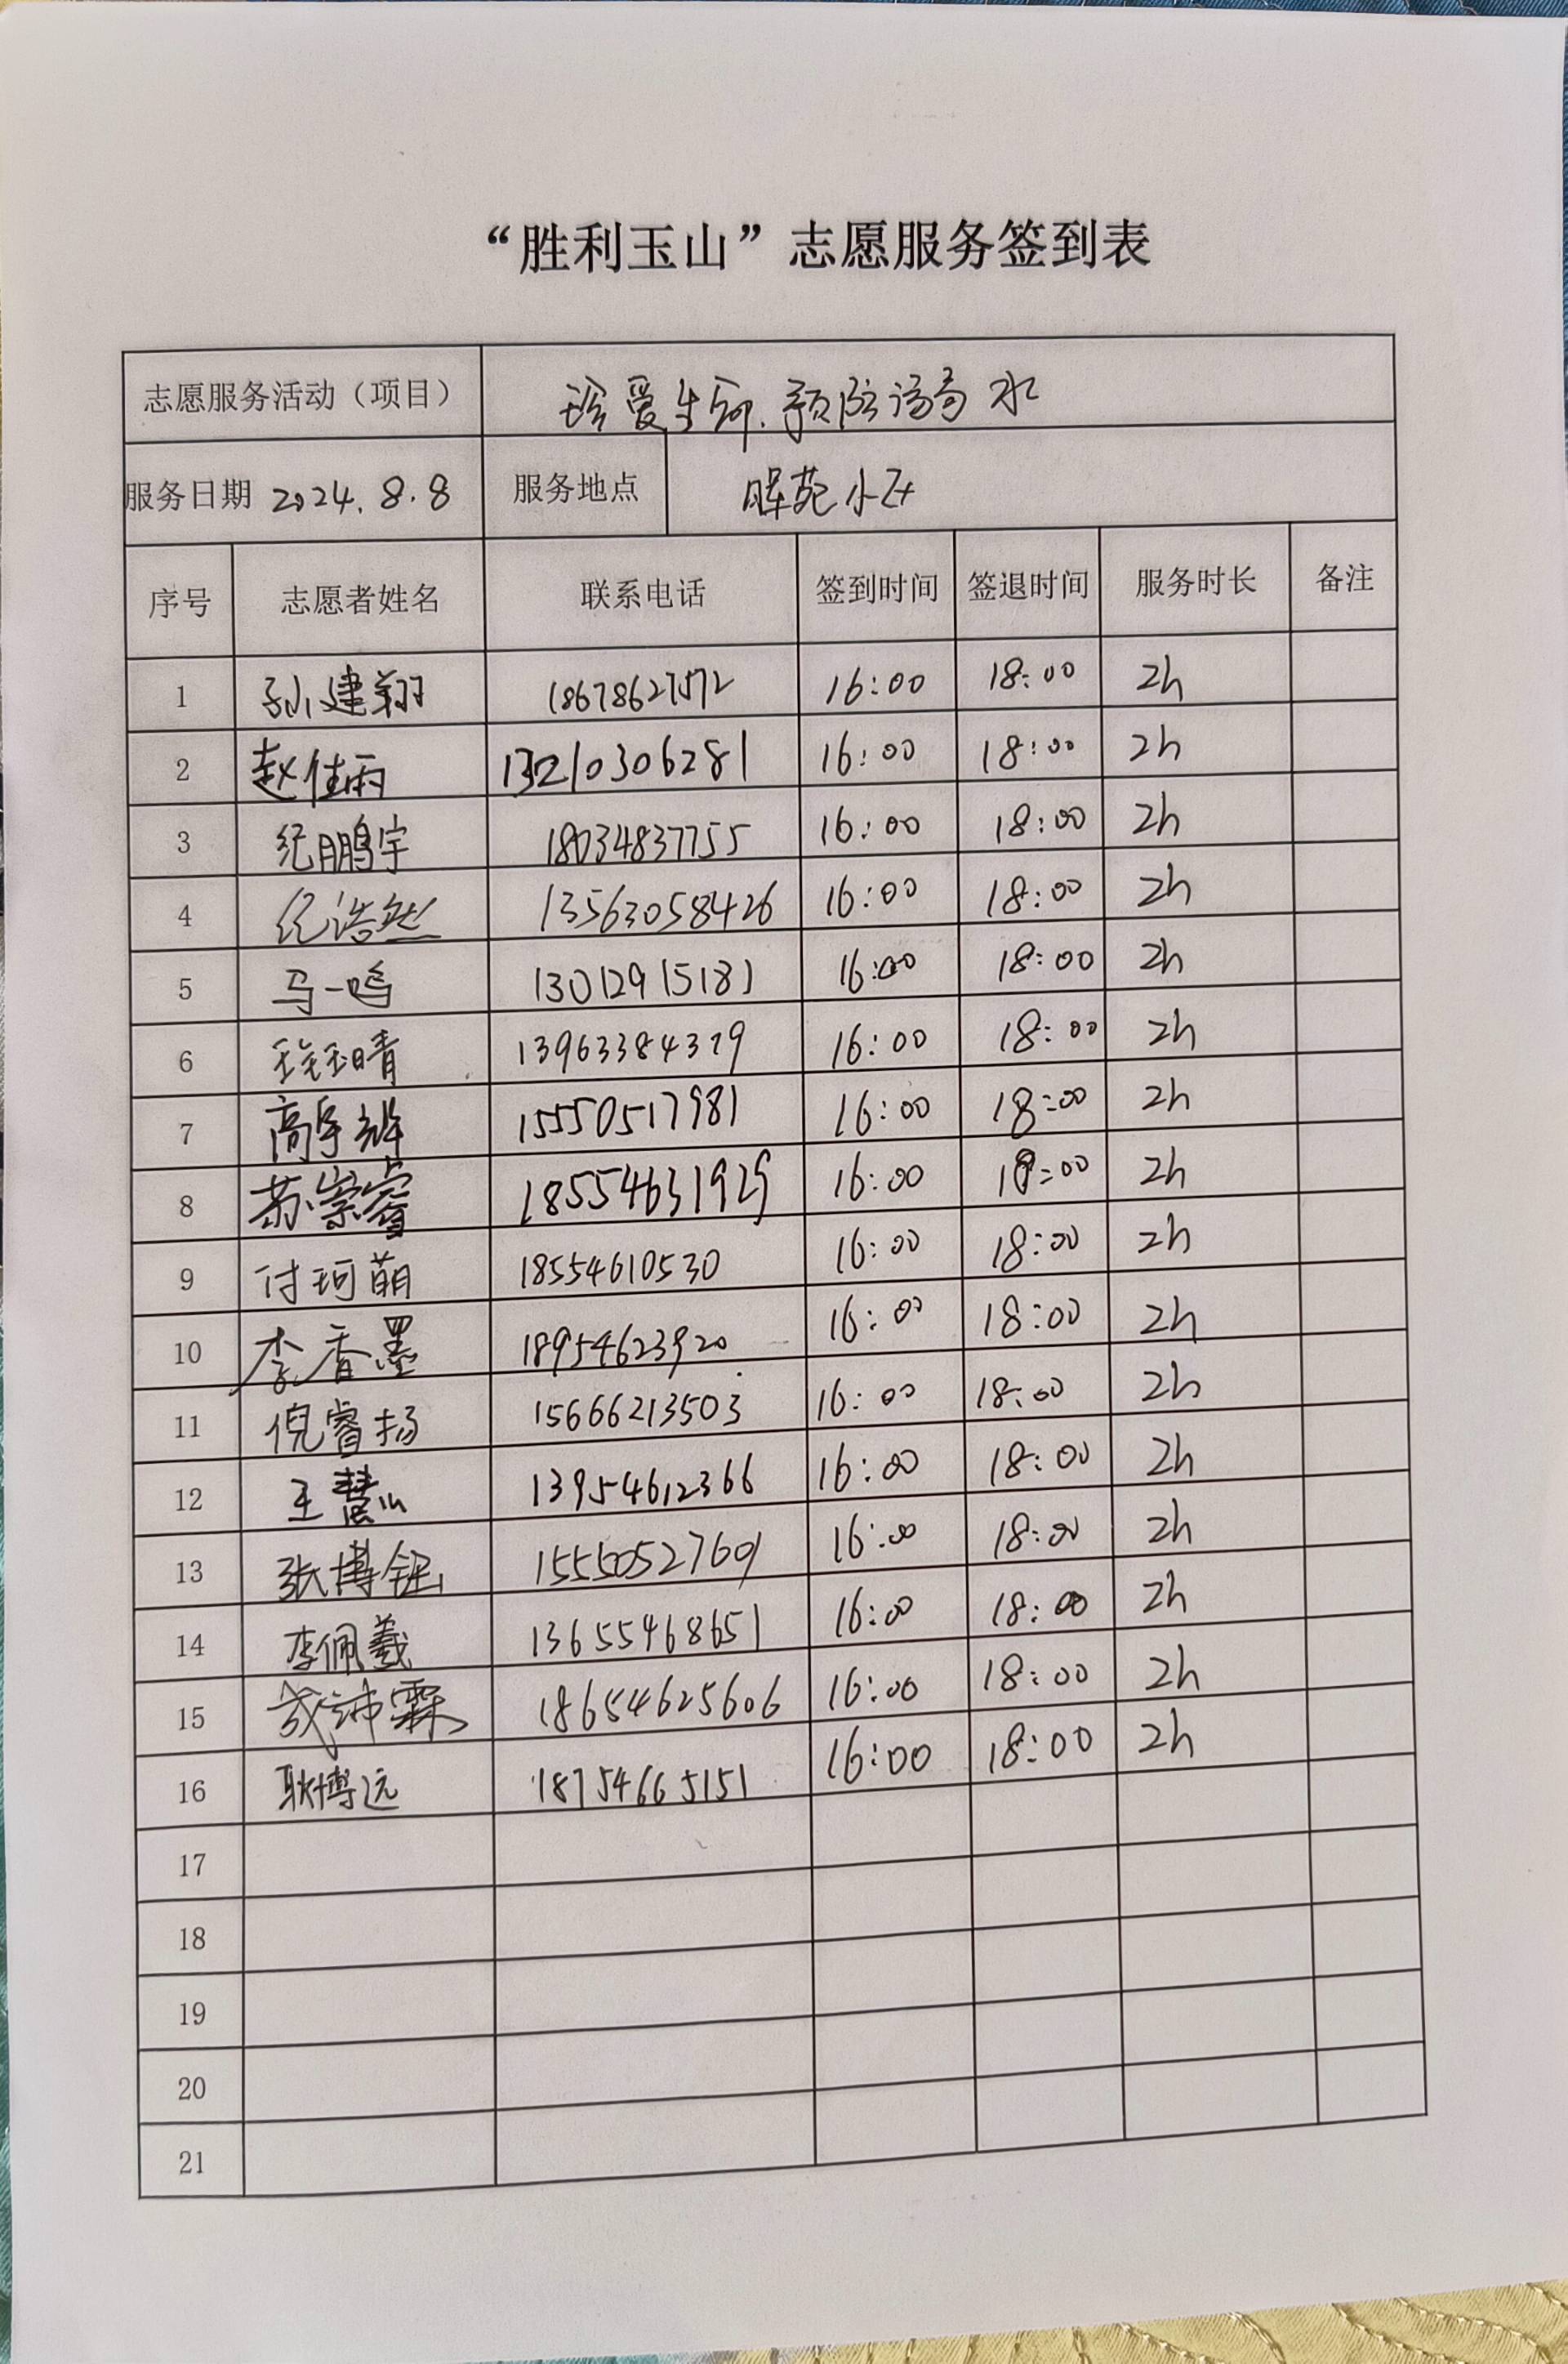 “胜利玉山”志愿服务签到表
志愿服务活动（项目） 珍爱生命.预防溺水
服务日期 2024.8.8 服务地点 晖苑小区
序号 志愿者姓名 联系电话 签到时间 签退时间 服务时长 备注
1 孙建翔 18678627572 16:00 18:00 2h
2 赵佳雨 13210306281 16:00 18:00 2h
3 纪鹏宇 18034837755 16:00 18:00 2h
4 纪浩然 13563058426 16:00 18:00 2h
5 马一鸣 13012915181 16:00 18:00 2h
6 13963384379 16:00 18:00 2h
7 高宇辉 15550517981 16:00 18:00 2h
8 苏崇睿 18554631929 16:00 18:00 2h
9 付珂萌 18554610530 16:00 18:00 2h
10 李香墨 18954623920 16:00 18:00 2h
11 倪睿扬 15666213503 16:00 18:00 2h
12 王慧心 13954612366 16:00 18:00 2h
13 张博钰 15550527601 16:00 18:00 2h
14 李佩羲 13655468651 16:00 18:00 2h
15 沛霖 18654625606 16:00 18:00 2h
16 耿博远 18754665151 16:00 18:00 2h
17
18
19
20
21